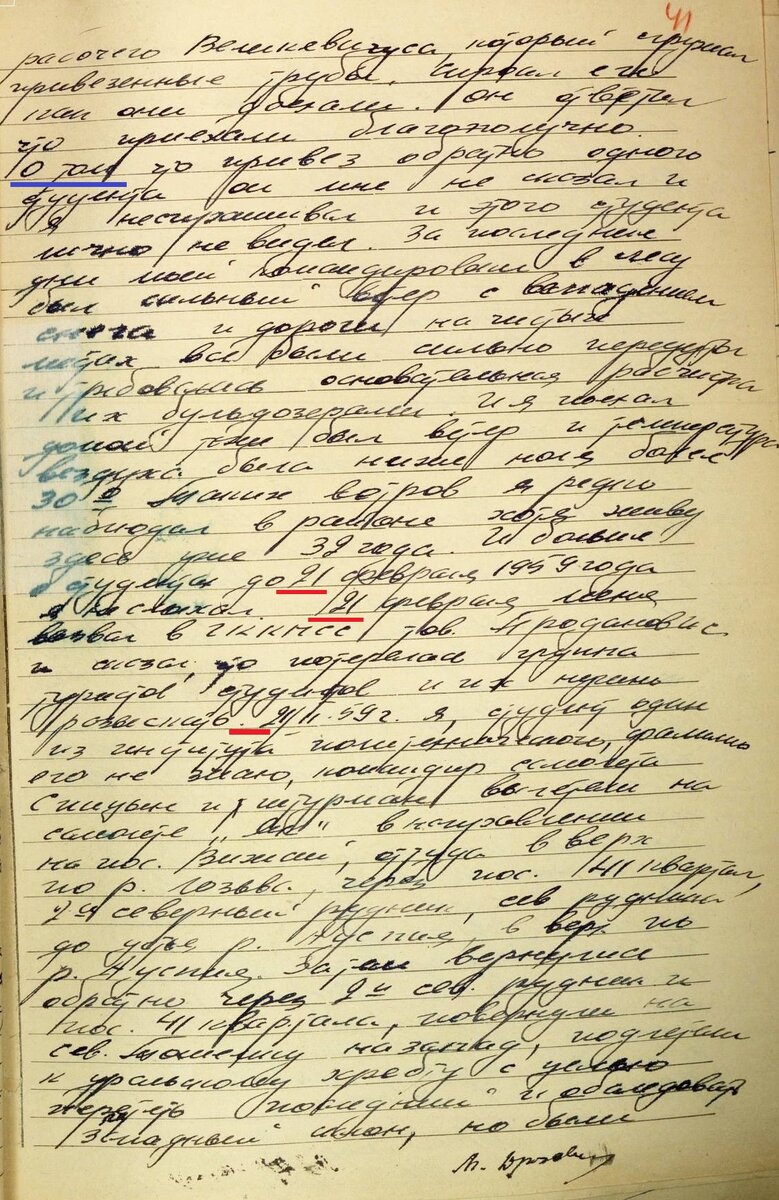 41
рабочего Великевичуса, который грузил
привезенные трубы. Спросил его
как они доехали. он ответил
что приехали благополучно.
О том что привез обратно одного
студента он мне не сказал и
я неспрашивал и этого студента
лично не видел. За последние
дни моей командировки в лесу
был сильный ветер с выпадением
снега и дороги на чистых
местах все были сильно передуты
и требовалась основательная расчистка
их бульдозерами. И я поехал
домой тоже был ветер и температура
воздуха была ниже ноля более
30° Таких ветров я редко
наблюдал в районе хотя живу
здесь уже 32 года. И больше
о студентах до 21 февраля 1959 года
я не слыхал. 21 февраля меня
вызвал в ГК КПСС тов. Проданов И.С.
и сказал, что потерялась группа
туристов студентов и их нужно
розыскать. 21/II.59 г. я, студент один
из института политехнического, фамилию
его не знаю, командир самолета
и штурман вылетели на
самолете в направлении
на пос. Вижай, оттуда в верх
по р. Лозьва, через пос. 41 квартал,
2й северный рудник, сев рудника
до устья р. Ауспия, в верх по
р. Ауспия. Затем вернулись
обратно через 2й сев. рудник и
пос. 41 квартала, повернули на
сев. Тошемку на запад, подлетели
к уральскому хребту с целью
последний и обследовать
западный склон, но были